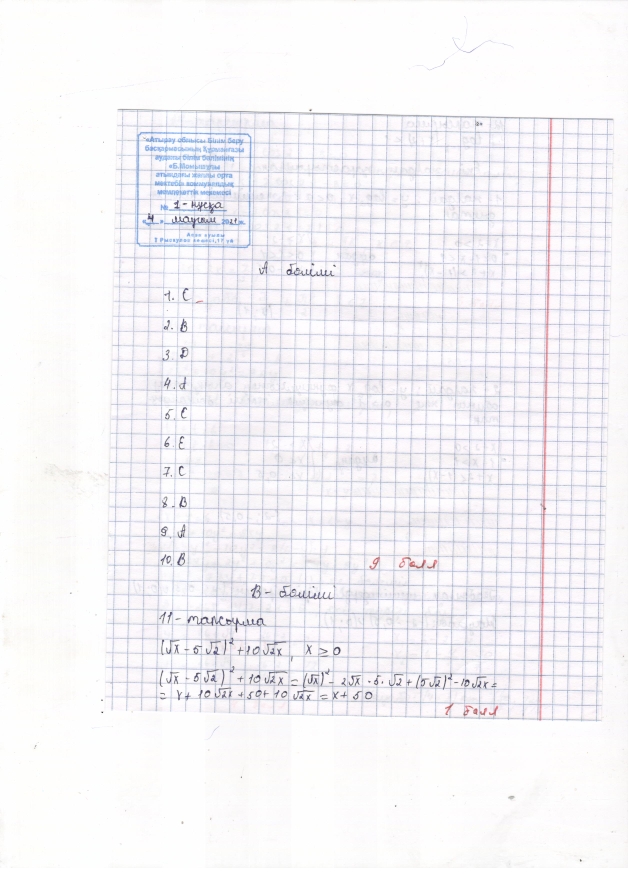 «Атырау облысы Білім беру
басқармасының Құрманғазы
ауданы білім бөлімінің
«Б.Момышұлы
атындағы жалпы орта
мектебі» коммуналдық
мемлекеттік мекемесі
№ 1-нұсқа
«4» маусым 2021ж.
А бөлімі
1. C
2. B
3. D
4. A
5. C
6. E
7. C
8. B
9. A
10. B
9 балл
В-бөлімі
11-тапсырма
(√x - 5√2)² + 10√2x, x ≥ 0
(√x - 5√2)² + 10√2x = (√x)² - 2√x · 5 · √2 + (5√2)² - 10√2x =
= x + 10√2x + 50 + 10√2x = x + 50
1 балл